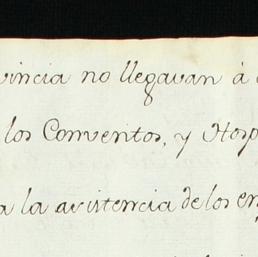 vincia no llegavan à
los Conventos, y Hosp
a la avistencia de los en